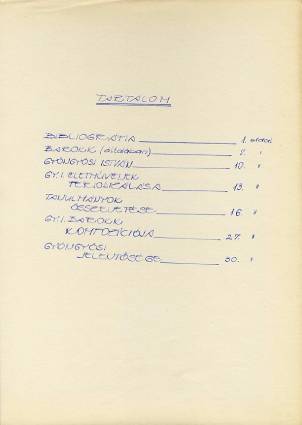 TARTALOM
BIBLIOGRÁFIA 1. oldal
BAROKK (általában) 2. "
GYÖNGYÖSI ISTVÁN 10. "
GY.I. ÉLETMŰVÉNEK
PERIODIZÁLÁSA 13. "
TANULMÁNYOK
ÖSSZEVETÉSE 16. "
GY.I. BAROKK
KOMPOZÍCIÓJA 27. "
GYÖNGYÖSI
JELENTŐSÉGE 30. "